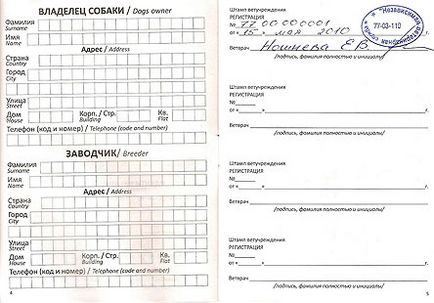 ВЛАДЕЛЕЦ СОБАКИ/ Dogs owner
Фамилия
Surname
Имя
Name
Адрес / Address
Страна
Country
Город
City
Улица
Street
Дом
House
Корп./ Стр.
Building
Кв.
Flat
Телефон (код и номер) / Telephone (code and number)
ЗАВОДЧИК/ Breeder
Фамилия
Surname
Имя
Name
Адрес/ Address
Страна
Country
Город
City
Улица
Street
Дом
House
Корп./ Стр.
Building
Кв.
Flat
Телефон (код и номер) / Telephone (code and number)
4
Штамп ветучреждения
РЕГИСТРАЦИЯ
№ 77 00000001
от « 15 » мая 2010
77-03-110
Ветврач Ношнева Е.В.
/подпись, фамилия полностью и инициалы/
Штамп ветучреждения
РЕГИСТРАЦИЯ
№
от « »
Ветврач
/подпись, фамилия полностью и инициалы/
Штамп ветучреждения
РЕГИСТРАЦИЯ
№
от « »
Ветврач
/подпись, фамилия полностью и инициалы/
Штамп ветучреждения
РЕГИСТРАЦИЯ
№
от « »
Ветврач
/подпись, фамилия полностью и инициалы/
5